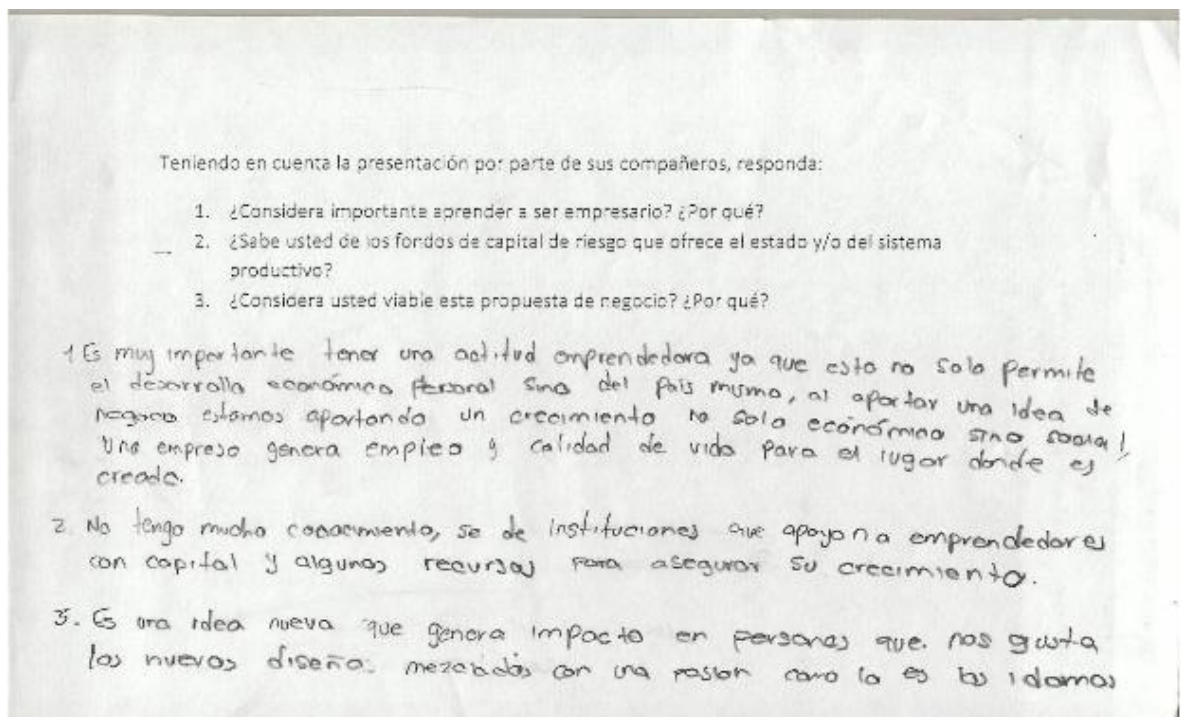 Teniendo en cuenta la presentación por parte de sus compañeros, responda:
1. ¿Considera importante aprender a ser empresario? ¿Por qué?
2. ¿Sabe usted de los fondos de capital de riesgo que ofrece el estado y/o del sistema
productivo?
3. ¿Considera usted viable esta propuesta de negocio? ¿Por qué?
1 Es muy importante tener una actitud emprendedora ya que esto no solo permite
el desarrollo económico personal sino del país mismo, al aportar una idea de
negocio estamos aportando un crecimiento no solo económico sino social,
Una empresa genera empleo y calidad de vida para el lugar donde es
creada.
2. No tengo mucho conocimiento, se de instituciones que apoyan a emprendedores
con capital y algunos recursos para asegurar su crecimiento.
3. Es una idea nueva que genera impacto en personas que nos gusta
los nuevos diseños mezclados con una pasion como lo es los idiomas